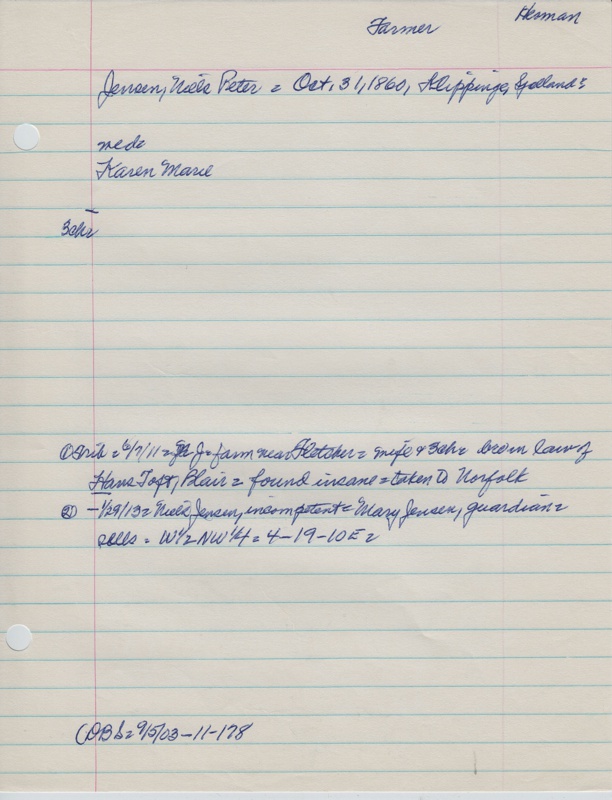 Farmer Herman
Jensen, Niels Peter = Oct. 31, 1860, Klippinge, Sjelland =
med=
Karen Marie
3ch=
① Trib = 6/7/11 = J = farm near Fletcher = wife & 3ch = bro in law of
Hans Toft, Blair = found insane = taken to Norfolk
② - 1/29/13 = Niels Jensen, incompetent = Mary Jensen, guardian =
sells = W½ NW¼ = 4-19-10E =
(DB b = 9/5/03-11-178